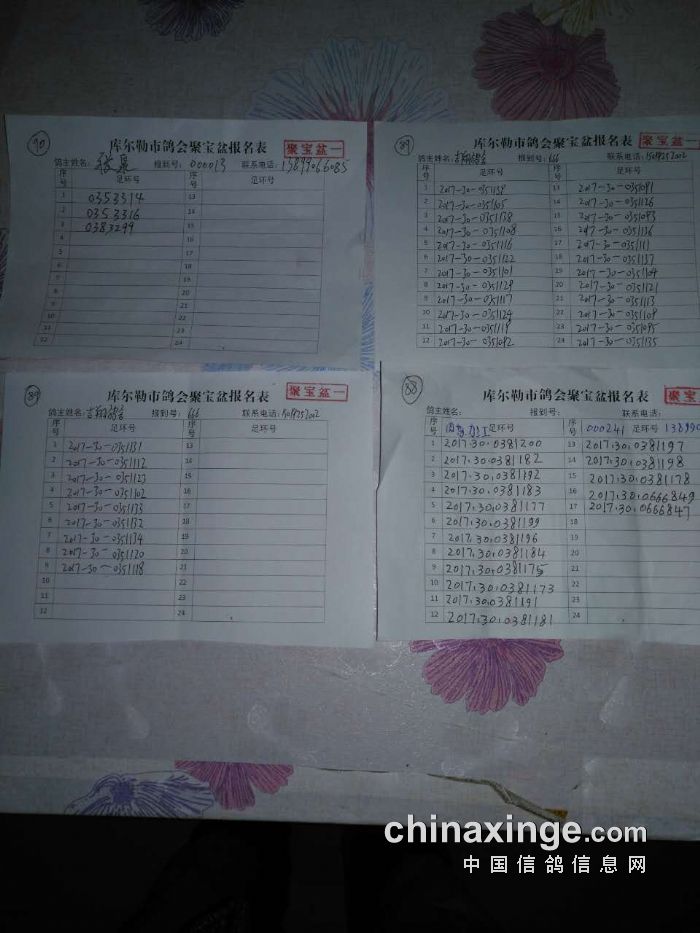 90
库尔勒市鸽会聚宝盆报名表
聚宝盆一
鸽主姓名：
报到号：000013
联系电话：13899066085
序号 足环号 序号 足环号
1 0353314 13
2 0353316 14
3 0383299 15
4 16
5 17
6 18
7 19
8 20
9 21
10 22
11 23
12 24
89
库尔勒市鸽会聚宝盆报名表
聚宝盆一
鸽主姓名：吉翔鸽舍
报到号：666
联系电话：
序号 足环号 序号 足环号
1 2017-30-0351139 13 2017-30-0351091
2 2017-30-0351105 14 2017-30-0351126
3 2017-30-0351138 15 2017-30-0351093
4 2017-30-0351108 16 2017-30-0351136
5 2017-30-0351116 17 2017-30-0351111
6 2017-30-0351122 18 2017-30-0351137
7 2017-30-0351101 19 2017-30-0351104
8 2017-30-0351129 20 2017-30-0351121
9 2017-30-0351117 21 2017-30-0351113
10 2017-30-0351124 22 2017-30-0351109
11 2017-30-0351119 23 2017-30-0351095
12 2017-30-0351092 24 2017-30-0351135
89
库尔勒市鸽会聚宝盆报名表
聚宝盆一
鸽主姓名：吉翔鸽舍
报到号：666
联系电话：
序号 足环号 序号 足环号
1 2017-30-0351131 13
2 2017-30-0351112 14
3 2017-30-0351123 15
4 2017-30-0351102 16
5 2017-30-0351133 17
6 2017-30-0351132 18
7 2017-30-0351134 19
8 2017-30-0351120 20
9 2017-30-0351118 21
10 22
11 23
12 24
88
库尔勒市鸽会聚宝盆报名表
聚宝
鸽主姓名：
报到号：
联系电话：
序号 足环号 序号 000241 足环号 13899
1 2017.30.0381200 13 2017.30.0381197
2 2017.30.0381182 14 2017.30.0381198
3 2017.30.0381192 15 2017.30.0381178
4 2017.30.0381183 16 2017.30.0666849
5 2017.30.0381177 17 2017.30.0666847
6 2017.30.0381199 18
7 2017.30.0381196 19
8 2017.30.0381184 20
9 2017.30.0381175 21
10 2017.30.0381173 22
11 2017.30.0381191 23
12 2017.30.0381181 24
chinaxinge.com
中国信鸽信息网